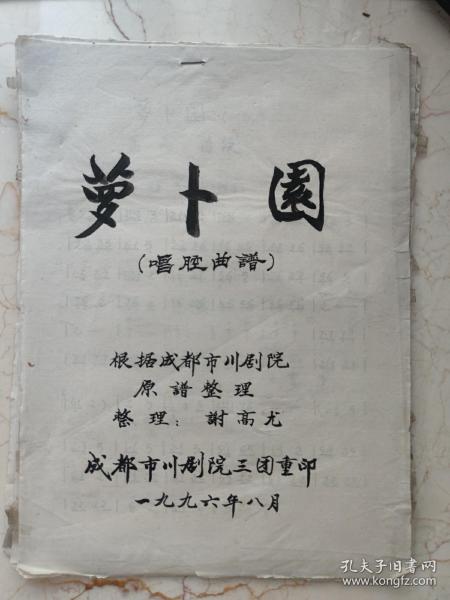 萝卜園
(唱腔曲譜)
根据成都市川剧院
原譜整理
整理：謝高尤
成都市川剧院三团重印
一九九六年八月
孔夫子旧书网
www.kongfz.com